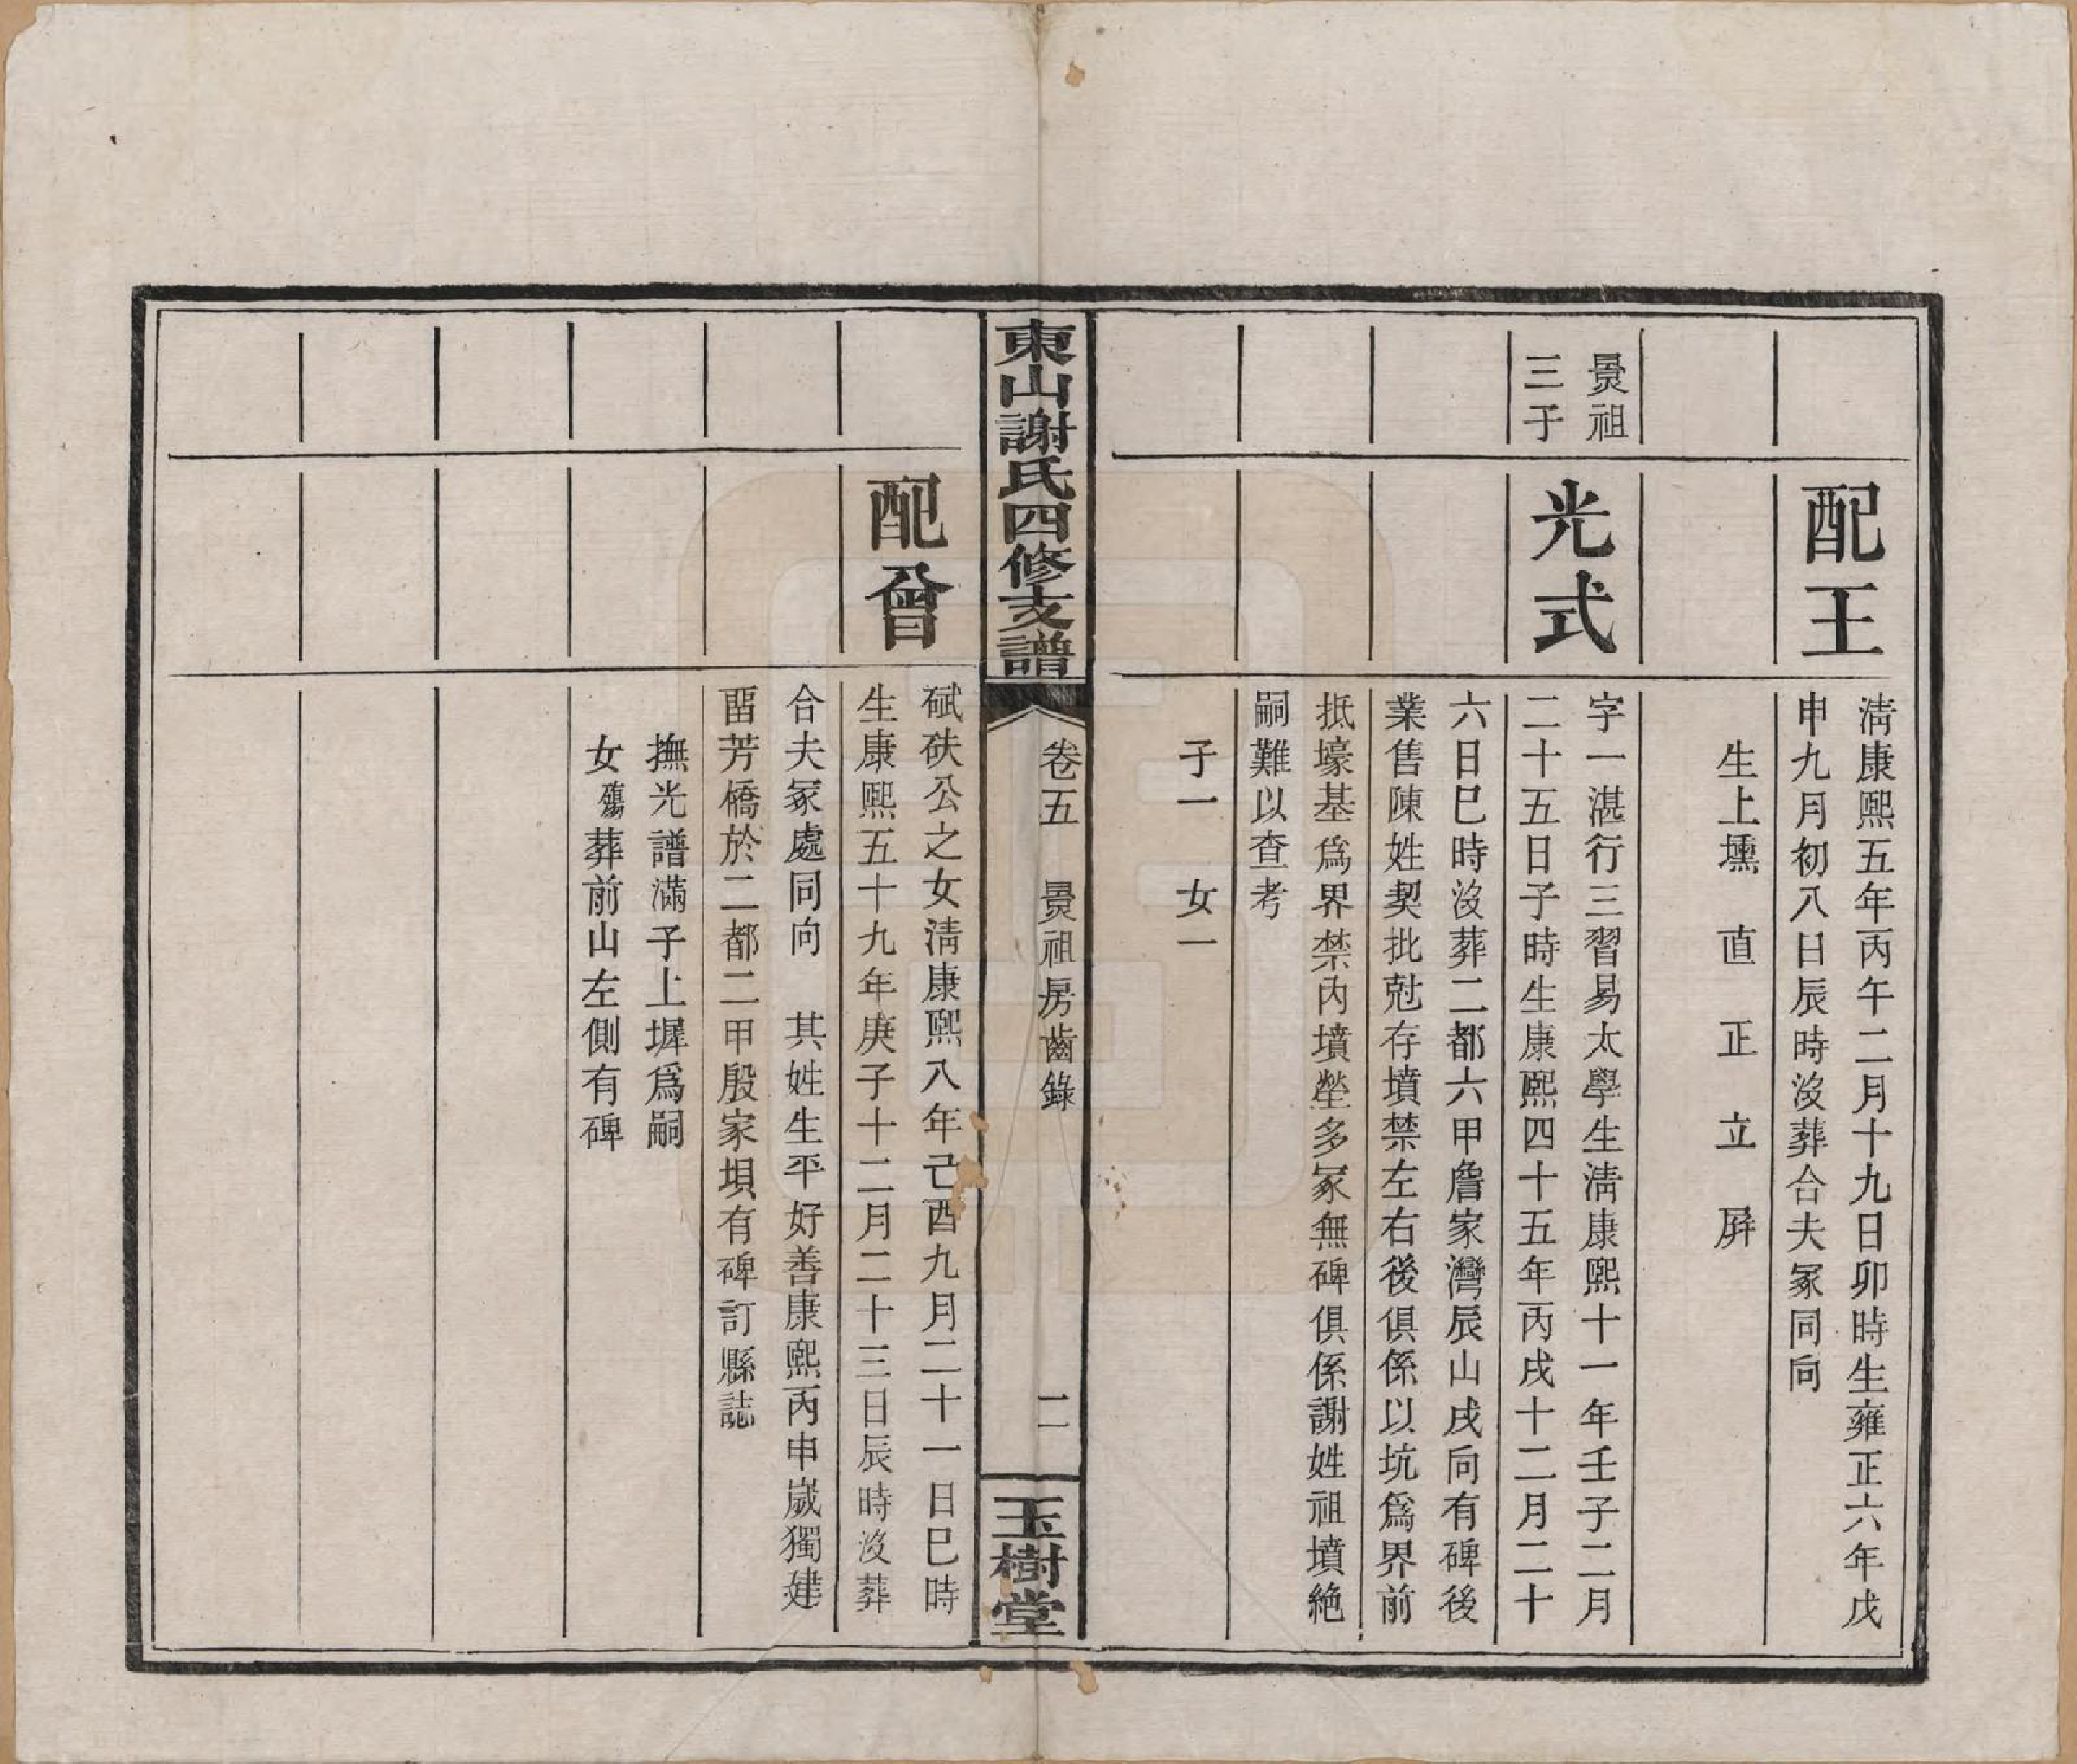 配王
清康熙五年丙午二月十九日卯時生雍正六年戊
申九月初八日辰時沒葬合夫冢同向
生上壎　直　正　立　屏
景祖
三子
光式
字一湛行三習易太學生清康熙十一年壬子二月
二十五日子時生康熙四十五年丙戌十二月二十
六日巳時沒葬二都六甲詹家灣辰山戌向有碑後
業售陳姓契批尅存墳禁左右後俱係以坑為界前
抵壕基為界禁內墳塋多冢無碑俱係謝姓祖墳絶
嗣難以查考
子一　女一
東山謝氏四修支譜
卷五　景祖房齒錄　二
玉樹堂
配曾
碔砆公之女清康熙八年己酉九月二十一日巳時
生康熙五十九年庚子十二月二十三日辰時沒葬
合夫冢處同向　其姓生平好善康熙丙申嵗獨建
畱芳橋於二都二甲殷家垻有碑訂縣誌
撫光譜滿子上墀為嗣
女殤葬前山左側有碑